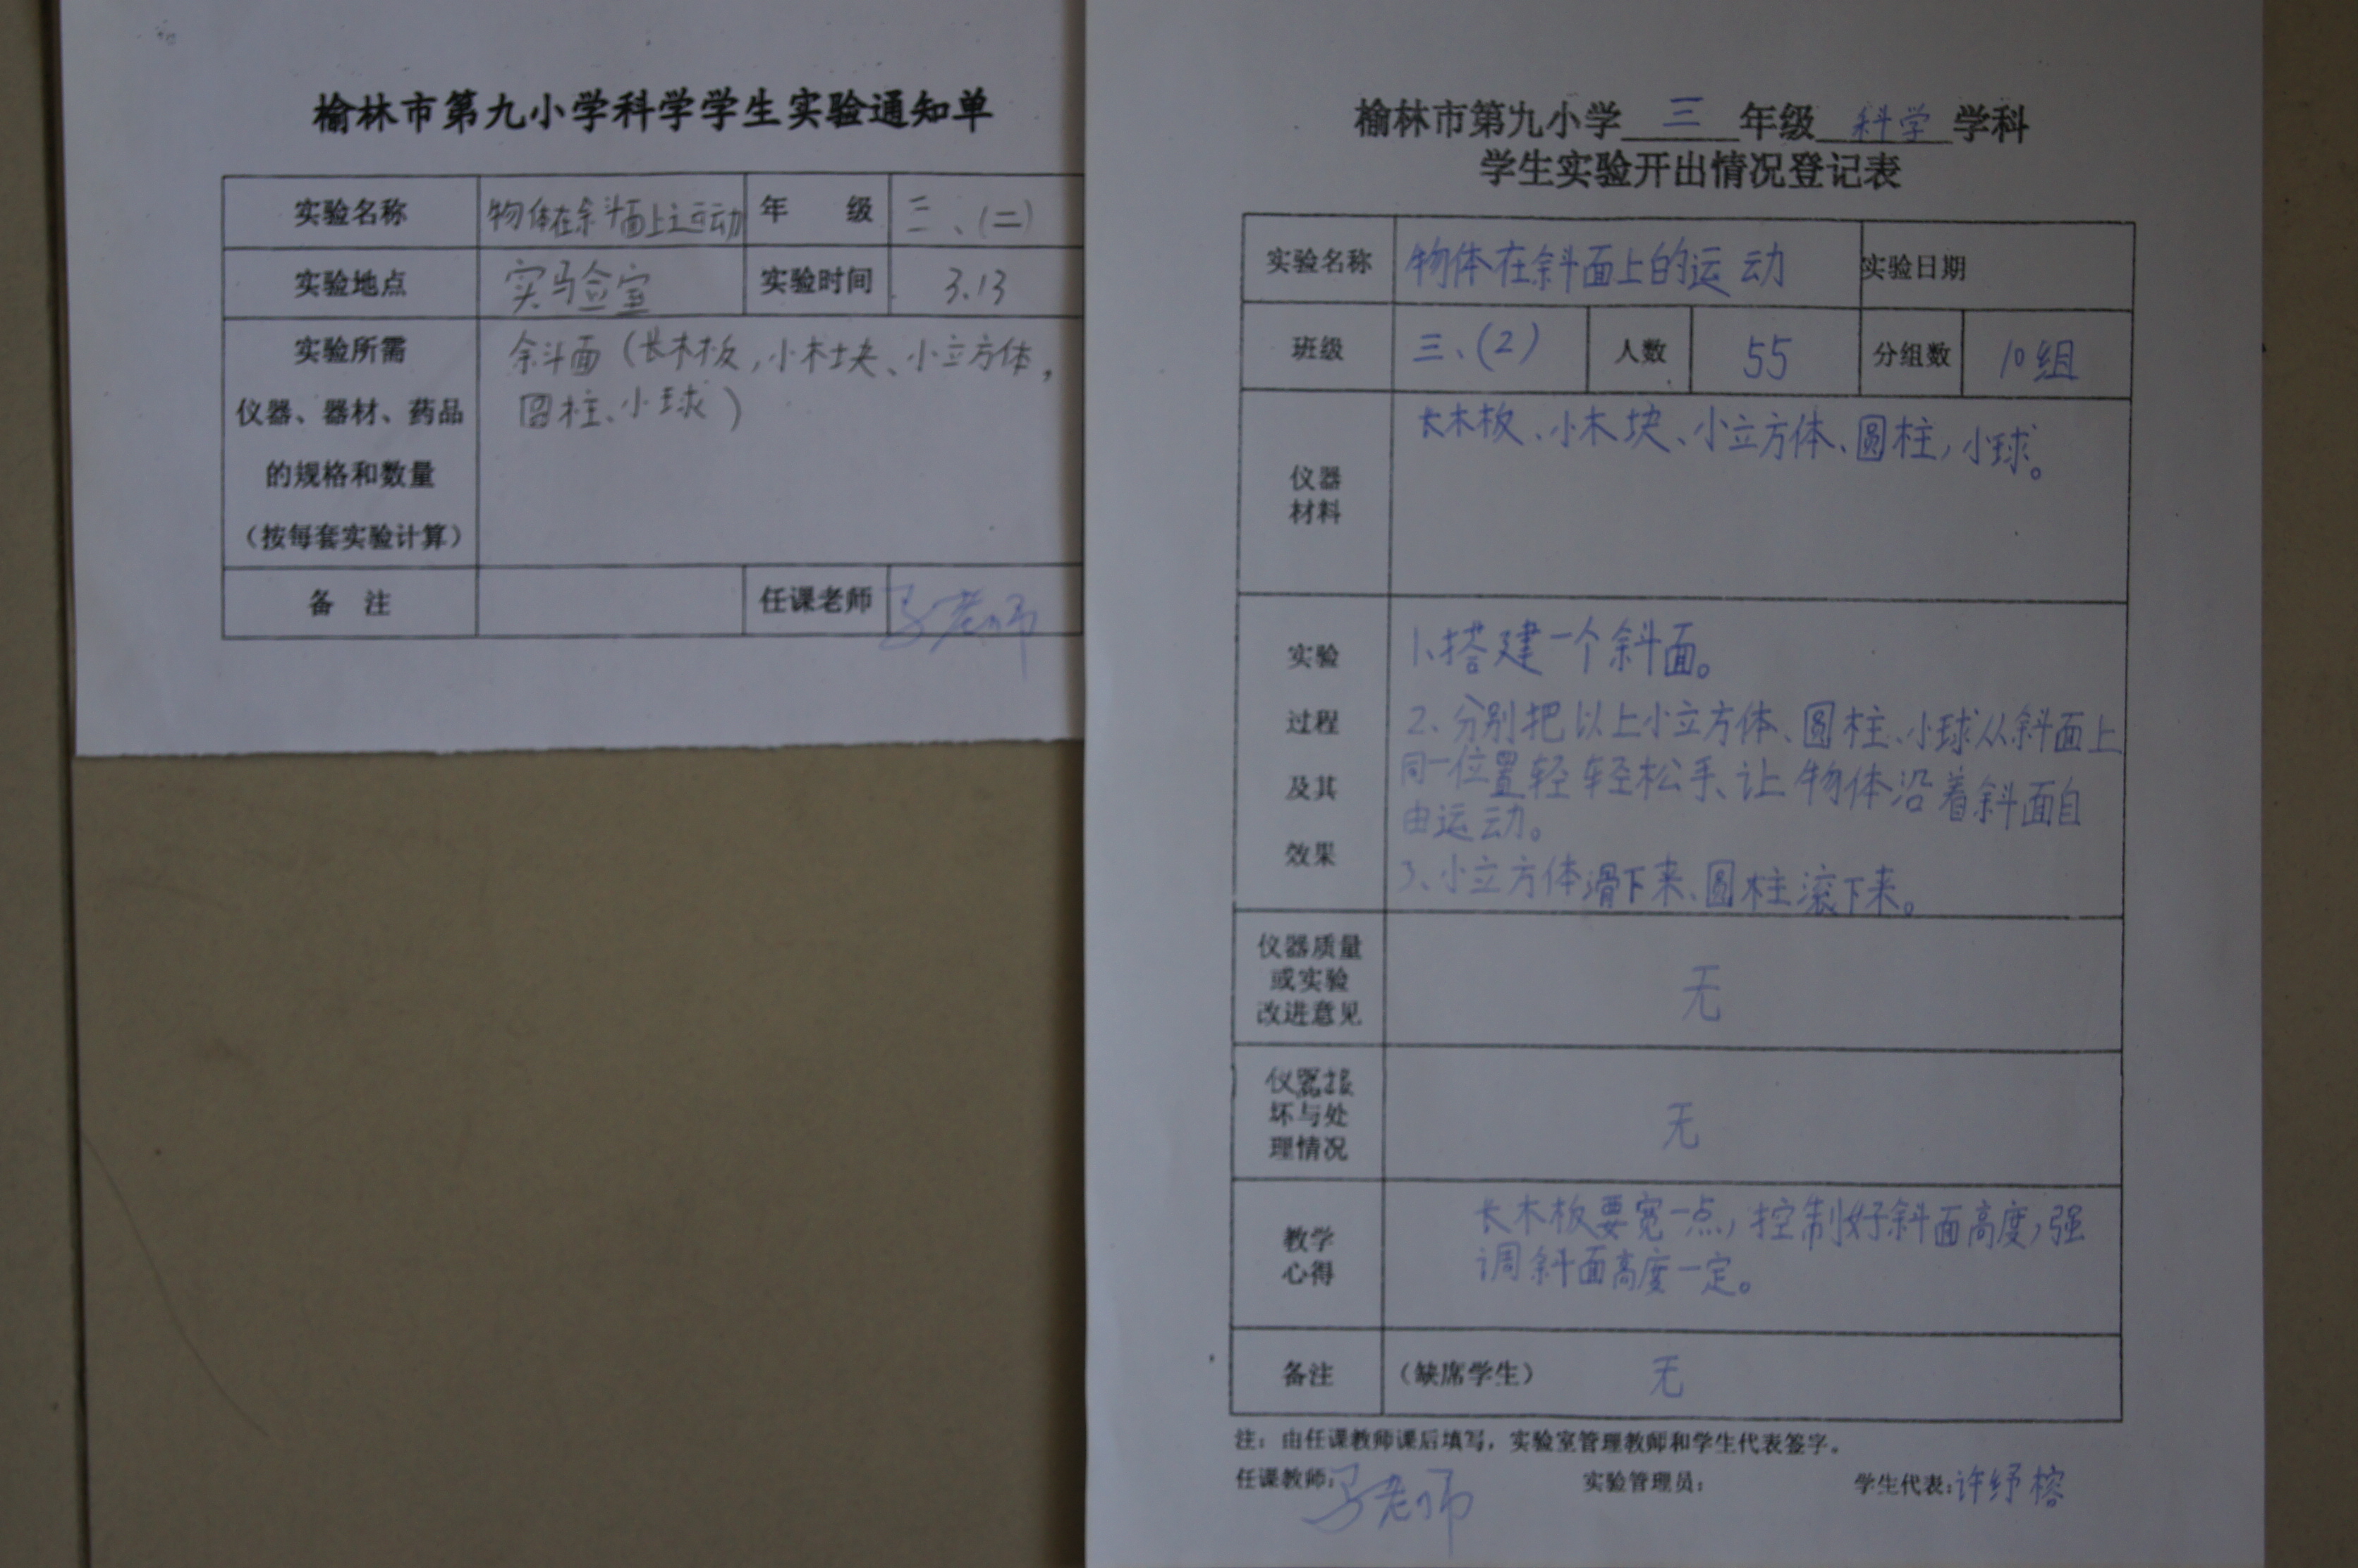 榆林市第九小学科学学生实验通知单
实验名称 物体在斜面上运动 年 级 三、(二)
实验地点 实验室 实验时间 3.13
实验所需
仪器、器材、药品
的规格和数量
(按每套实验计算)
斜面(长木板,小木块、小立方体,
圆柱、小球)
备 注 任课老师 马老师
榆林市第九小学 三 年级 科学 学科
学生实验开出情况登记表
实验名称 物体在斜面上的运动 实验日期
班级 三、(2) 人数 55 分组数 10组
仪器
材料
长木板、小木块、小立方体、圆柱,小球。
实验
过程
及其
效果
1、搭建一个斜面。
2、分别把以上小立方体、圆柱、小球从斜面上
同一位置轻轻松手、让物体沿着斜面自
由运动。
3、小立方体滑下来、圆柱滚下来。
仪器质量
或实验
改进意见
无
仪器损
坏与处
理情况
无
教学
心得
长木板要宽一点,控制好斜面高度,强
调斜面高度一定。
备注 (缺席学生) 无
注:由任课教师课后填写,实验室管理教师和学生代表签字。
任课教师:马老师 实验管理员: 学生代表:许纾榕